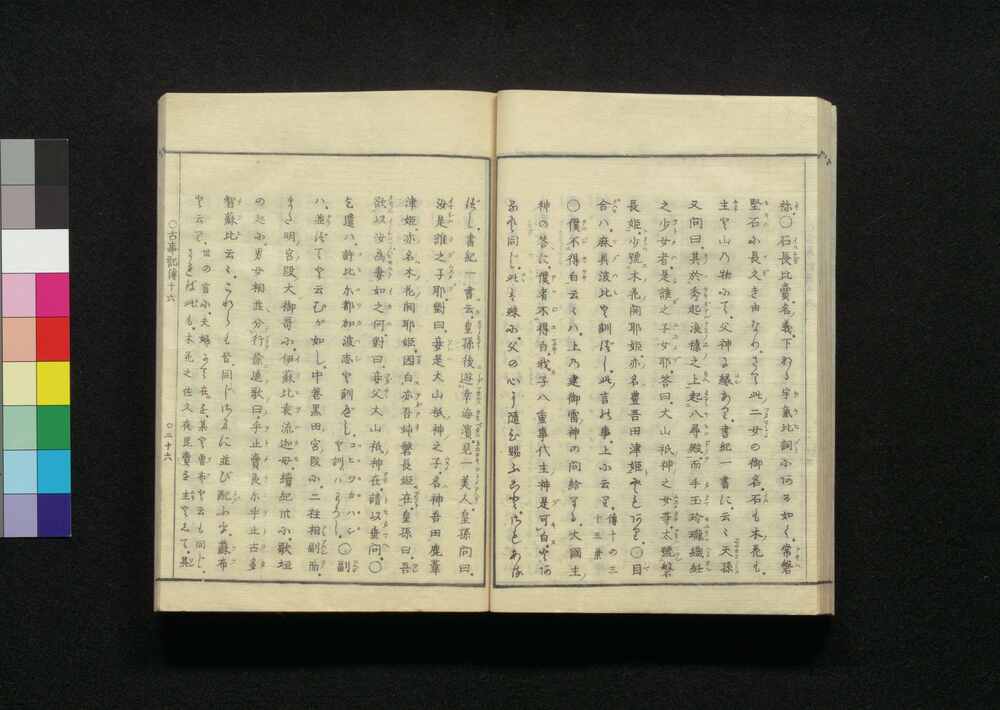 祢○石長比賣名義下わる宇氣比詞にあるが如く常磐
堅石に長久き由なりさて此二女の御名石も木花も
主と山乃物にて父神に縁あり書紀一書に云々天孫
又問曰其於秀起浪穂之上起八尋殿而手玉玲瓏織紝
之少女者是誰之子女耶答曰大山祇神之女等大號磐
長姫少號木花開耶姫亦名豊吾田津姫とあり○目
合ハ麻具波比と訓べし此言の事上に云り傳十の三
十三葉
○僕不得白云々ハ上乃建御雷神の問給する大國主
神の答に僕者不得白我子八重事代主神是可白とある
同じ此も殊に父の心に隨ひ賜ふ
べし書紀一書云皇孫後遊幸海濱見一美人皇孫問曰
汝是誰之子耶對曰妾是大山祇神之子名神吾田鹿葦
津姫亦名木花開耶姫因白亦吾姉磐長姫在皇孫曰吾
欲以汝為妻如之何對曰妾父大山祇神在請以垂問○
乞遣ハ許比尓都加波志と訓べし○副
ハ並べてと云むが如し中巻黒田宮段に二柱相副而
また明宮段大御哥に伊蘇比袁流迦母續紀卅に歌垣
の処に男女相並分行徐進歌曰乎止賣良尓乎止古多
智蘇比云々これらも皆同じ並び配ふ蘇布
と云て世の言に夫婦になりて在をと曽布と云も同じ
此も木花之佐久夜毘賣を主として其
○古事記傳十六
○二十六